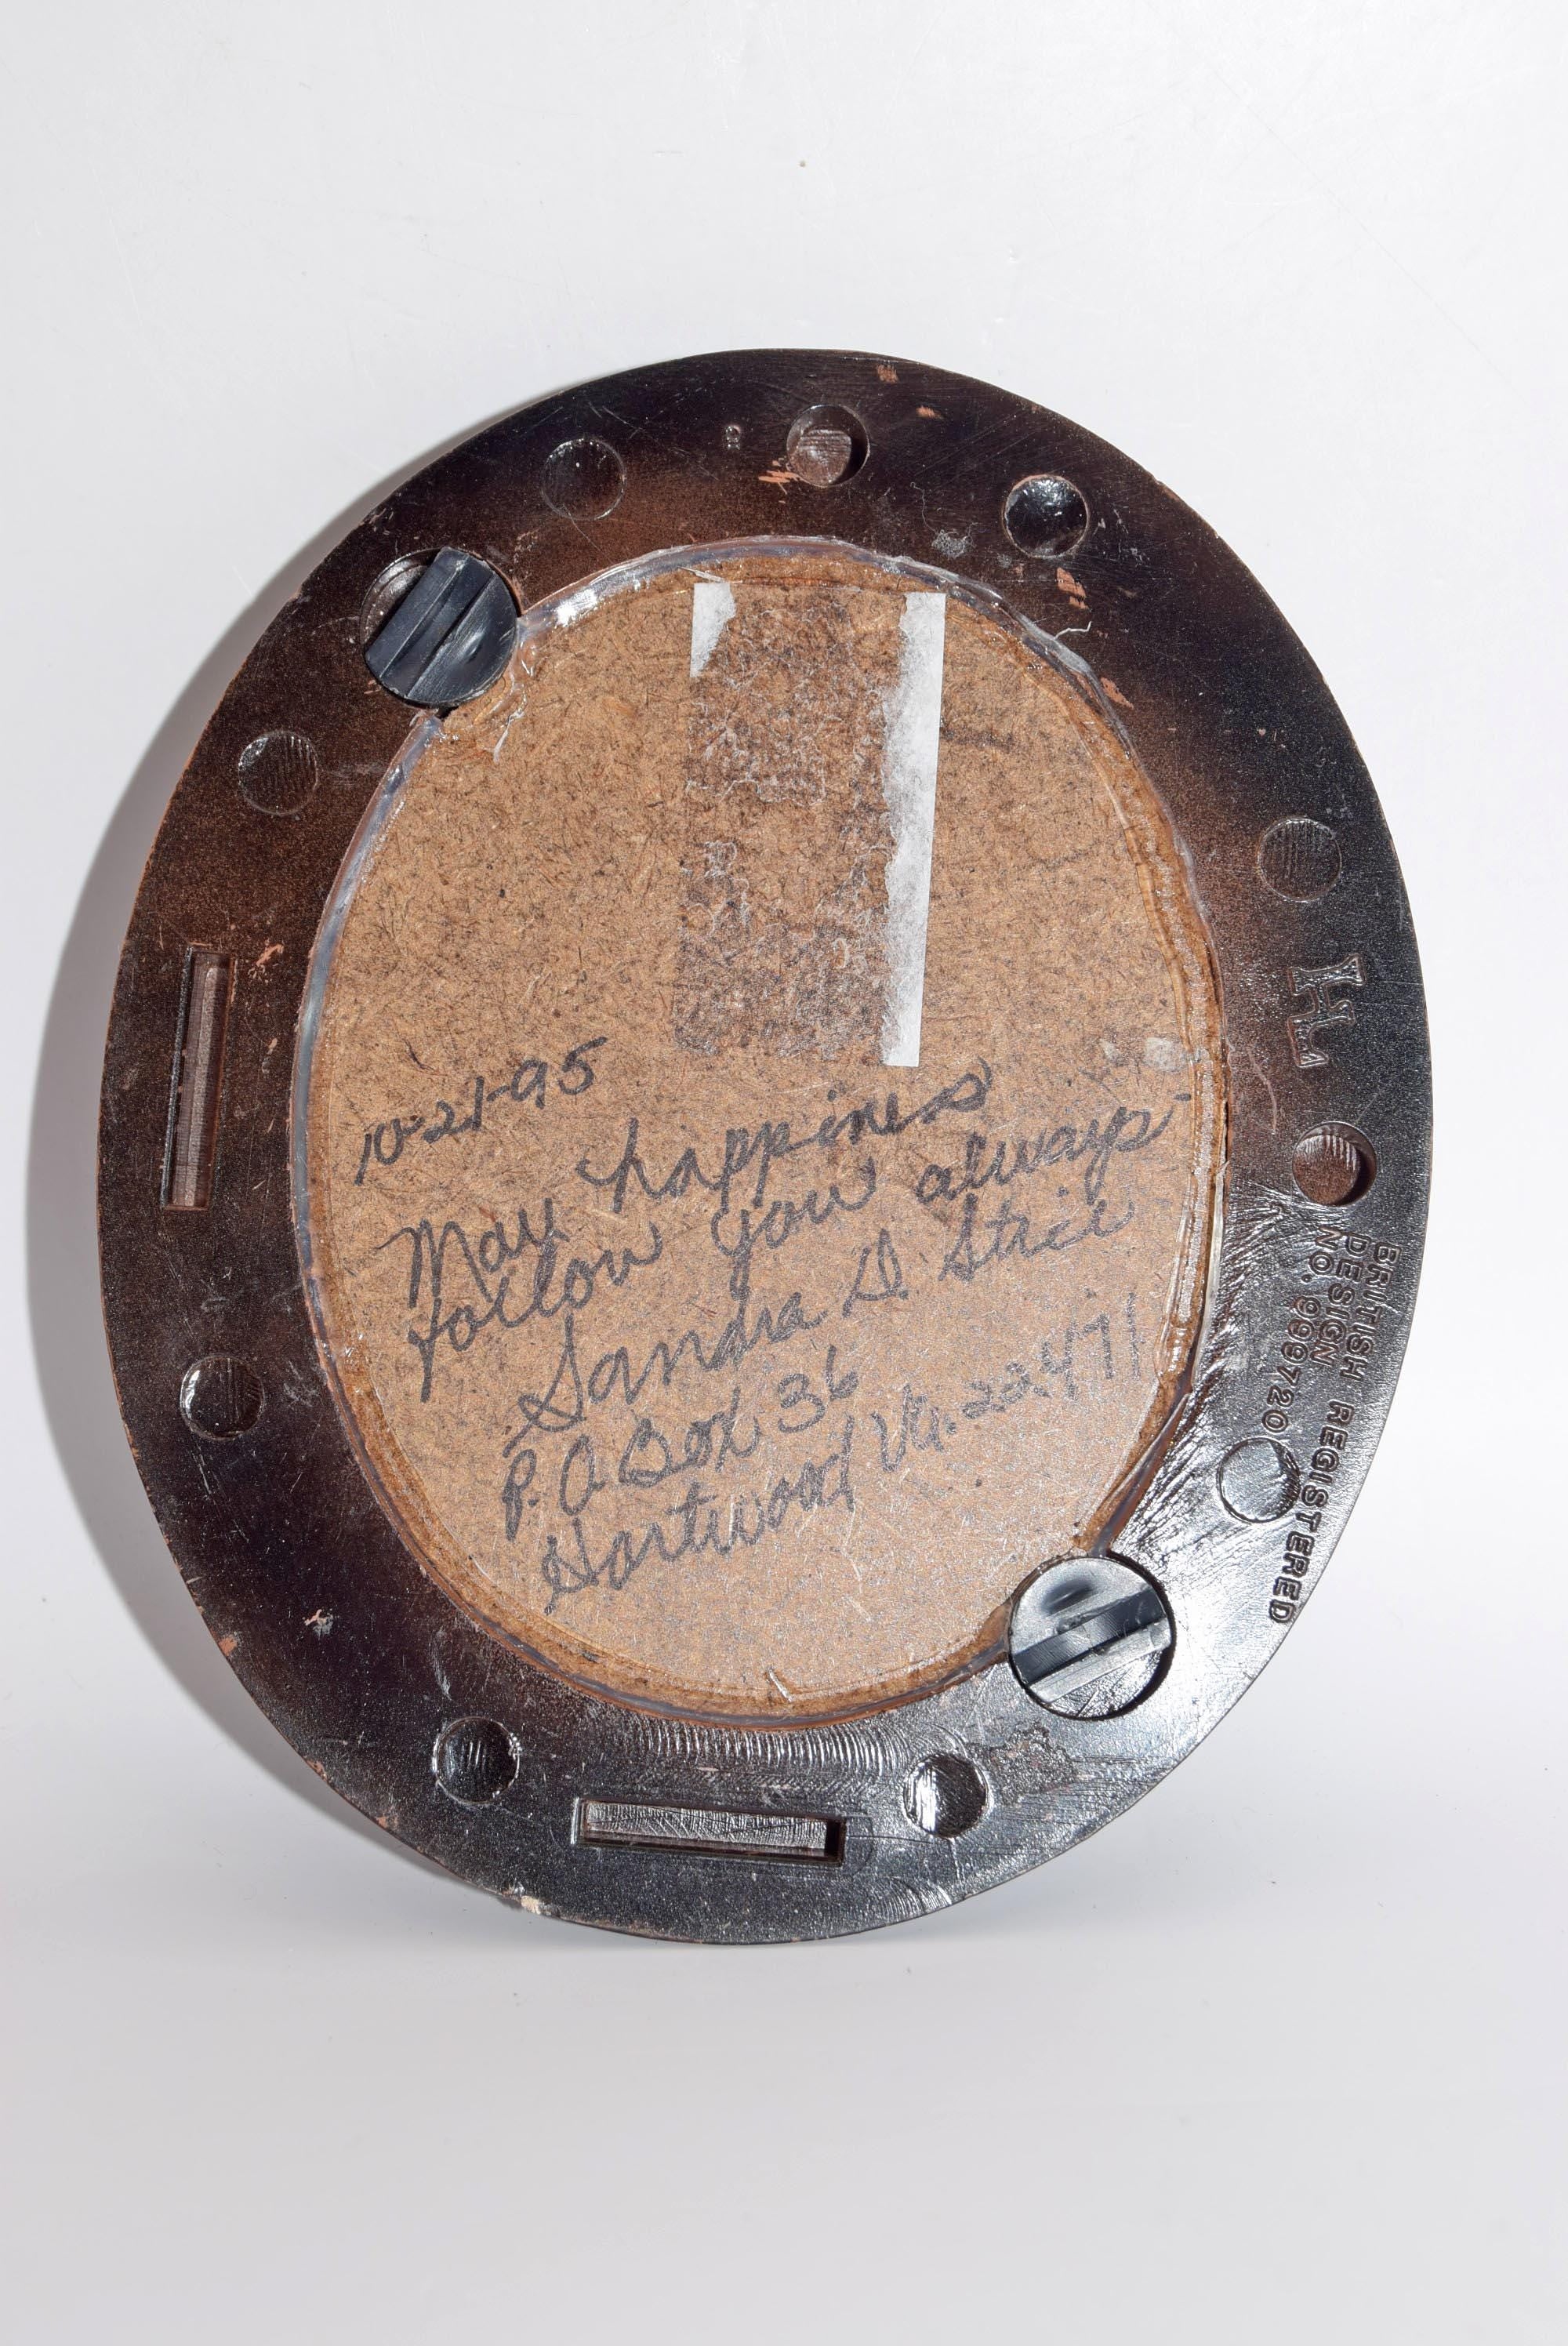 10-21-95
May happiness
follow you always
Sandra D.
P.O Box 36
Hartwood Va. 22471
HL
BRITISH REGISTERED
DESIGN
NO. 999720